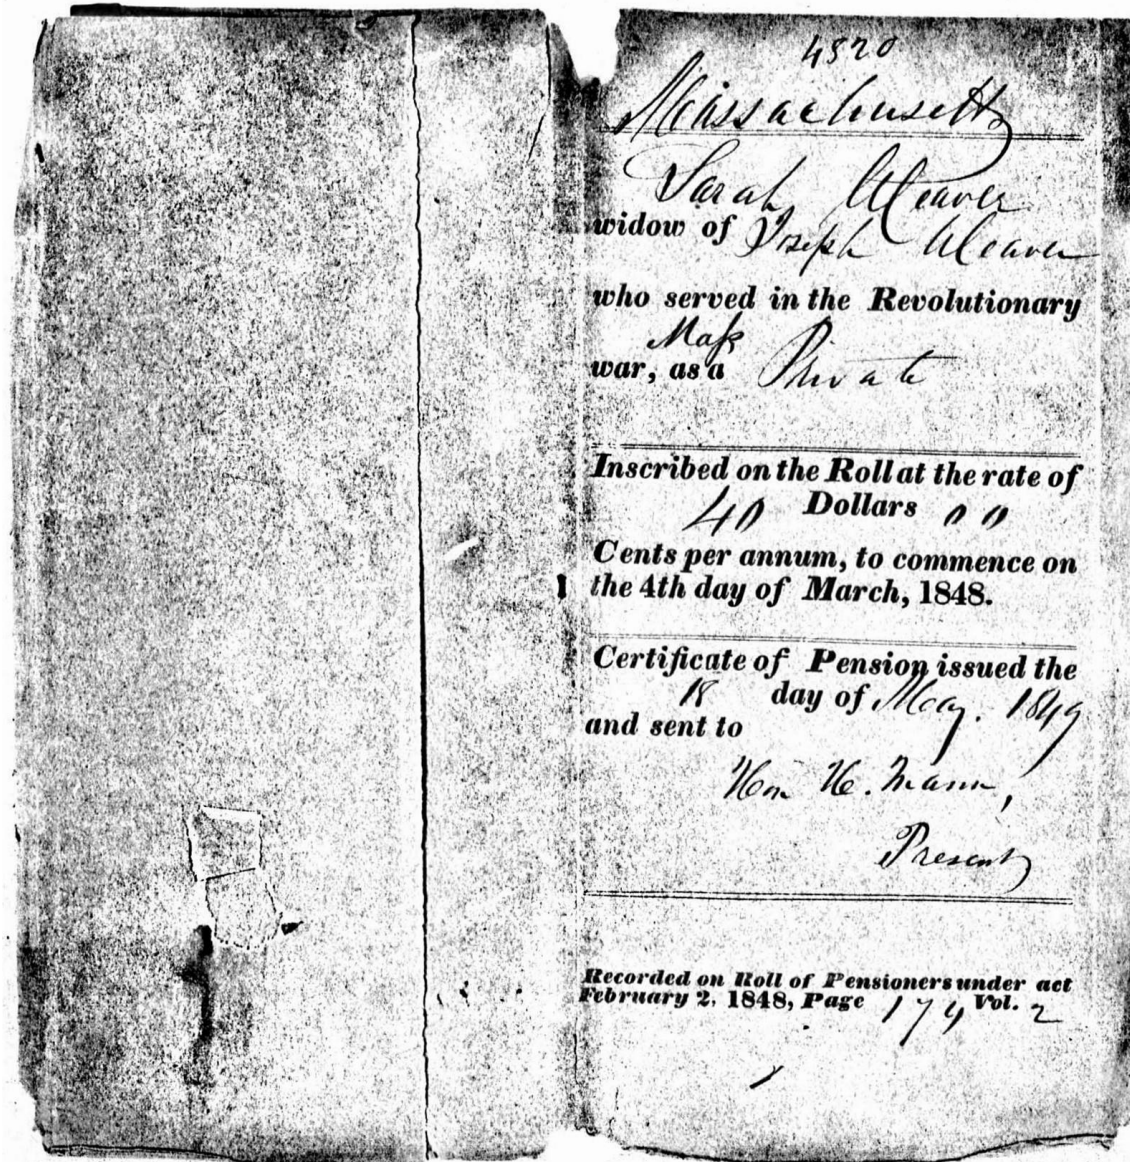 4520
Massachusetts
Sarah Weaver
widow of Joseph Weaver
who served in the Revolutionary
Mass
war, as a Private
Inscribed on the Roll at the rate of
40 Dollars 00
Cents per annum, to commence on
the 4th day of March, 1848.
Certificate of Pension issued the
18 day of May. 1849
and sent to
Hon H. Mann,
Present
Recorded on Roll of Pensioners under act
February 2, 1848, Page 174 Vol. 2